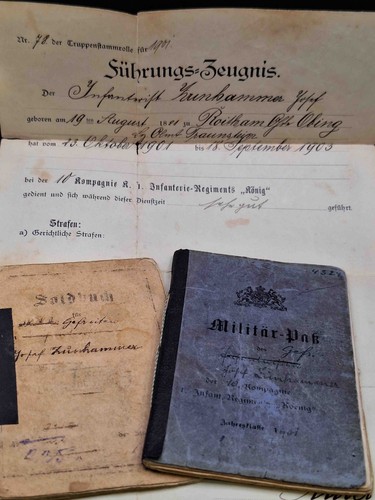 Nr. 78 der Truppenstammrolle für 1901
Führungs-Zeugnis.
Der Infanterist Zunhammer Josef
geboren am 19ten August 1881 zu Roitham Gde Obing
Bz. Amt Traunstein
hat vom 23. Oktober 1901 bis 18. September 1903
bei der 10 Kompagnie K. Infanterie-Regiments „König"
gedient und sich während dieser Dienstzeit sehr gut geführt.
Strafen:
a) Gerichtliche Strafen:
Soldbuch
Gefreiten
Josef Zunhammer
Militär-Paß
des Gefr.
Josef Zunhammer
der 10. Kompagnie
Infant.-Regiments Koenig
Jahresklasse 1901